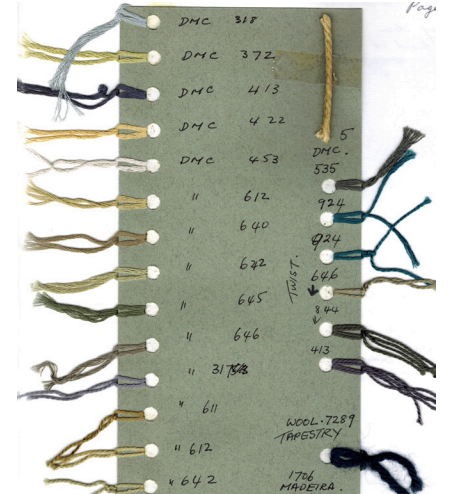 Page
DMC 318
DMC 372
DMC 413
DMC 422
DMC 453
" 612
" 640
" 642
" 645
" 646
" 317
" 611
" 612
" 642
5
DMC.
535
924
924
TWIST.
646
844
413
WOOL.7289
TAPESTRY
1706
MADEIRA.